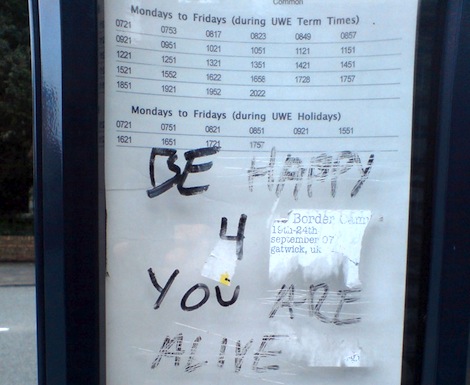 Common
Mondays to Fridays (during UWE Term Times)
0721 0753 0817 0823 0849 0857
0921 0951 1021 1051 1121 1151
1221 1251 1321 1351 1421 1451
1521 1552 1622 1658 1728 1757
1851 1921 1952 2022
Mondays to Fridays (during UWE Holidays)
0721 0751 0821 0851 0921 1551
1621 1651 1721 1757
BE HAPPY
4
Border
19th-24th
september 07
gatwick, uk
YOU ARE
ALIVE